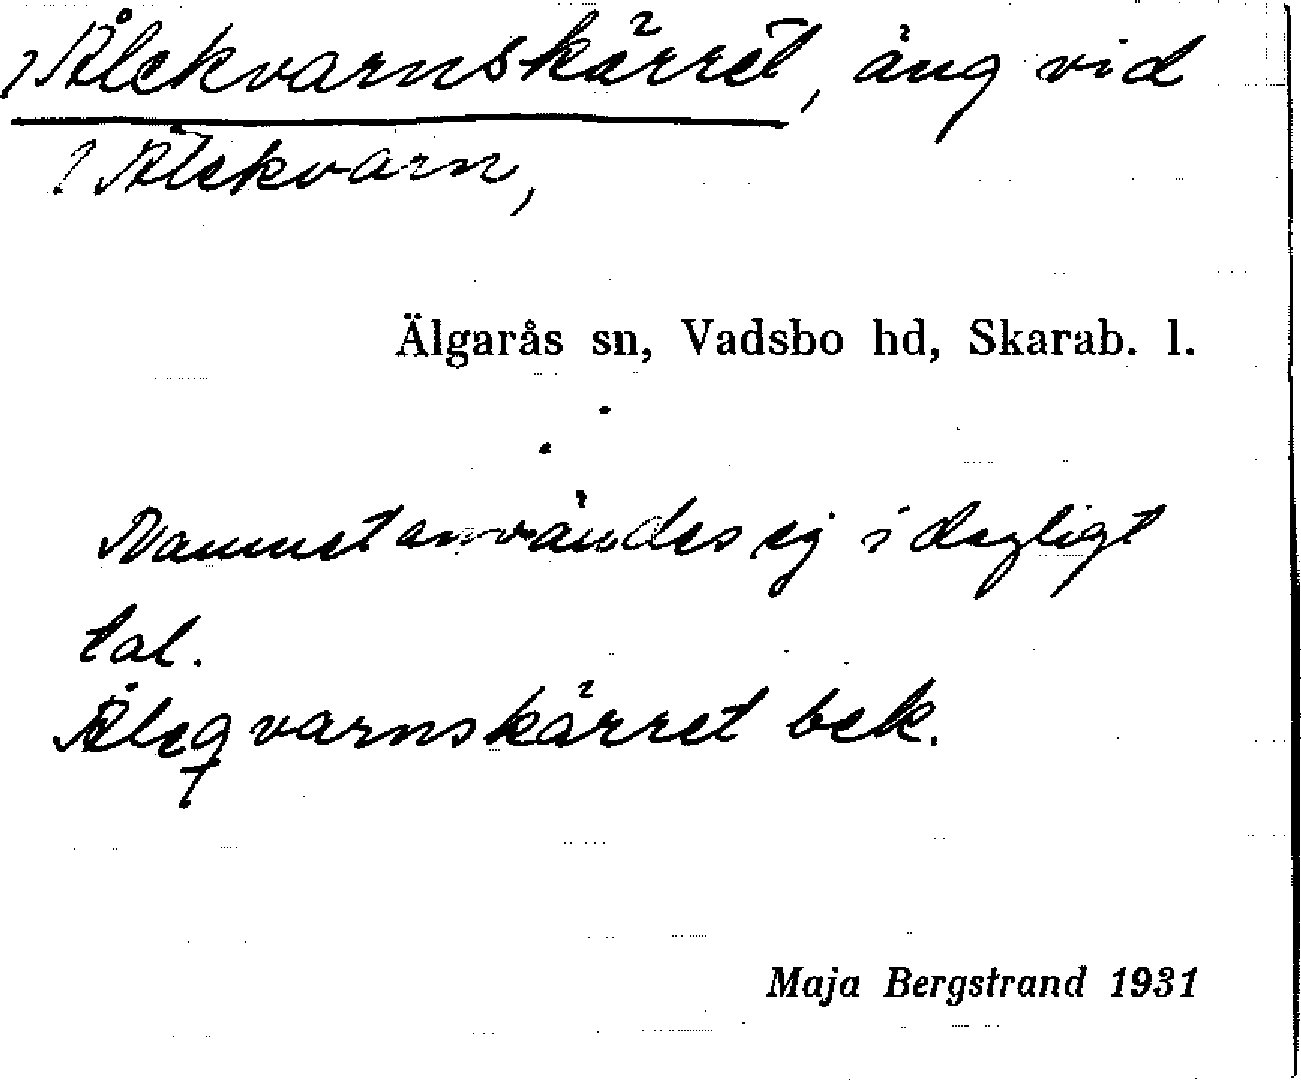 ?Ålekvarnskärret, äng vid
? Ålekvarn,
Älgarås sn, Vadsbo hd, Skarab. l.
Namnet användes ej i dagligt
tal.
Åleqvarnskärret bek.
Maja Bergstrand 1931